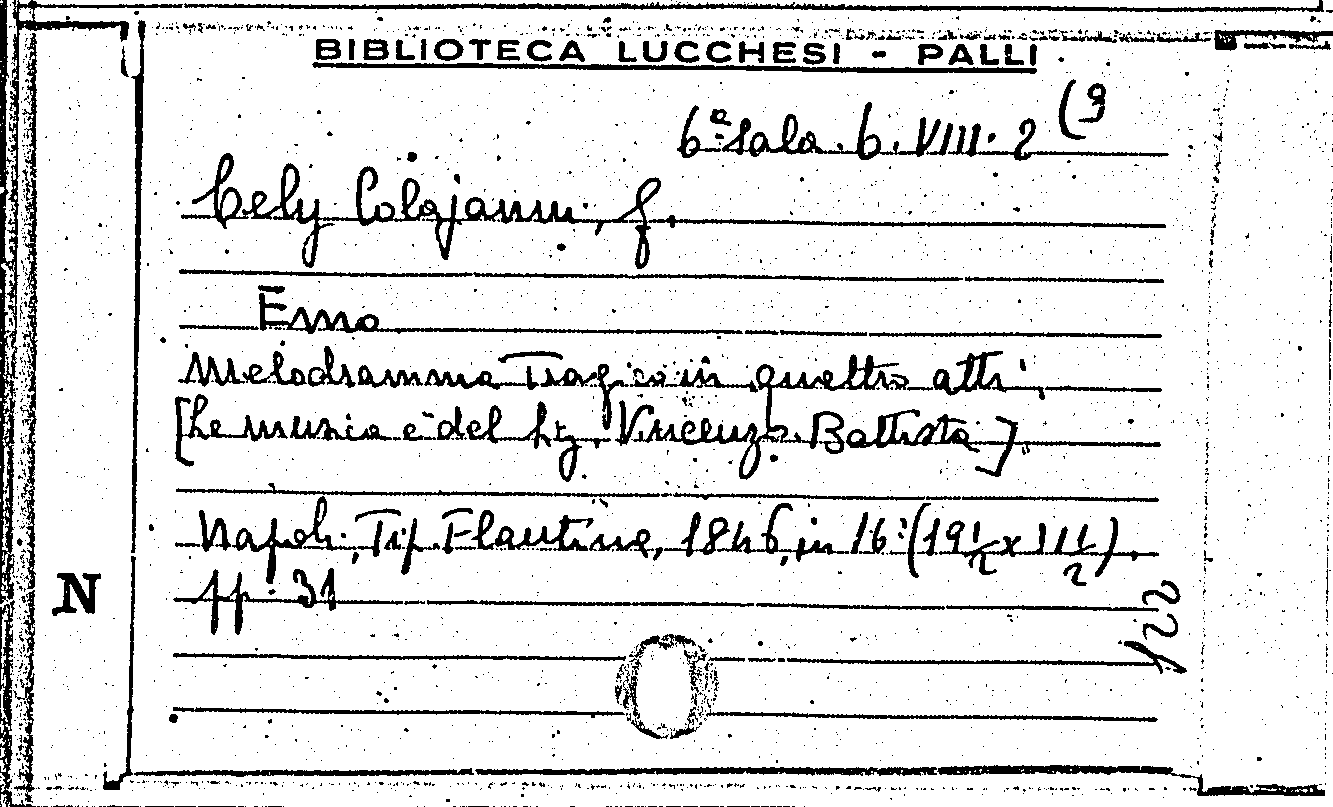 BIBLIOTECA LUCCHESI - PALLI
6ª Sala. 6. VIII. 2 (9
Cely Colajanni, F.
Emo
Melodramma Tragico in quattro atti,
[La musica è del Sig. Vincenzo Battista].
Napoli, Tip. Flautina, 1846, in 16º (19 1/2 x 11 1/2).
pp. 31
N